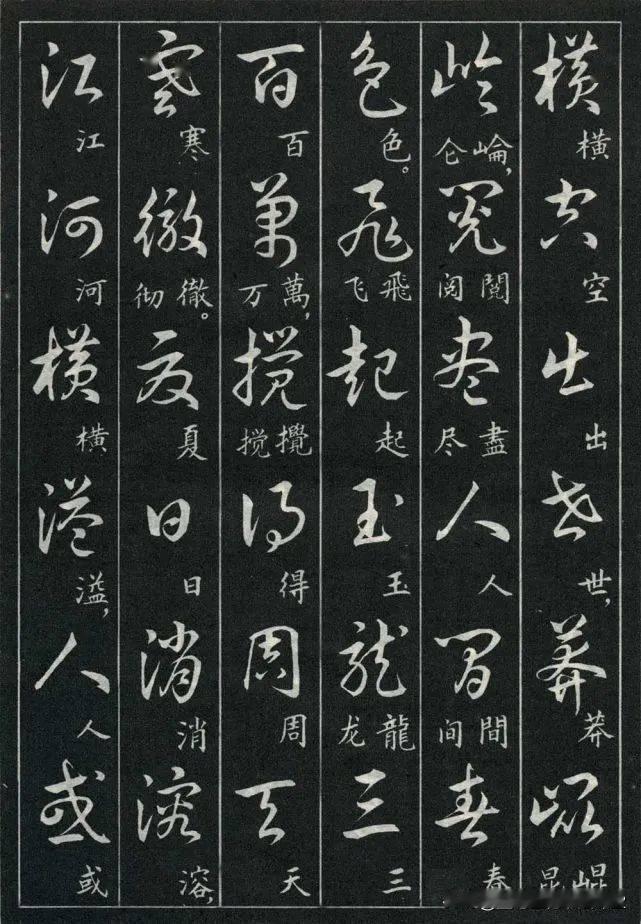 横空出世莽崐
横空出世,莽崐昆
崘閱盡人間春
崘,仑閱阅盡尽人間间春
色飛起玉龍三
色。飛飞起玉龍龙三
百萬攪得周天
百萬,万攪搅得周天
寒徹夏日消溶
寒徹。彻夏日消溶,
江河横溢人或
江河横溢,人或